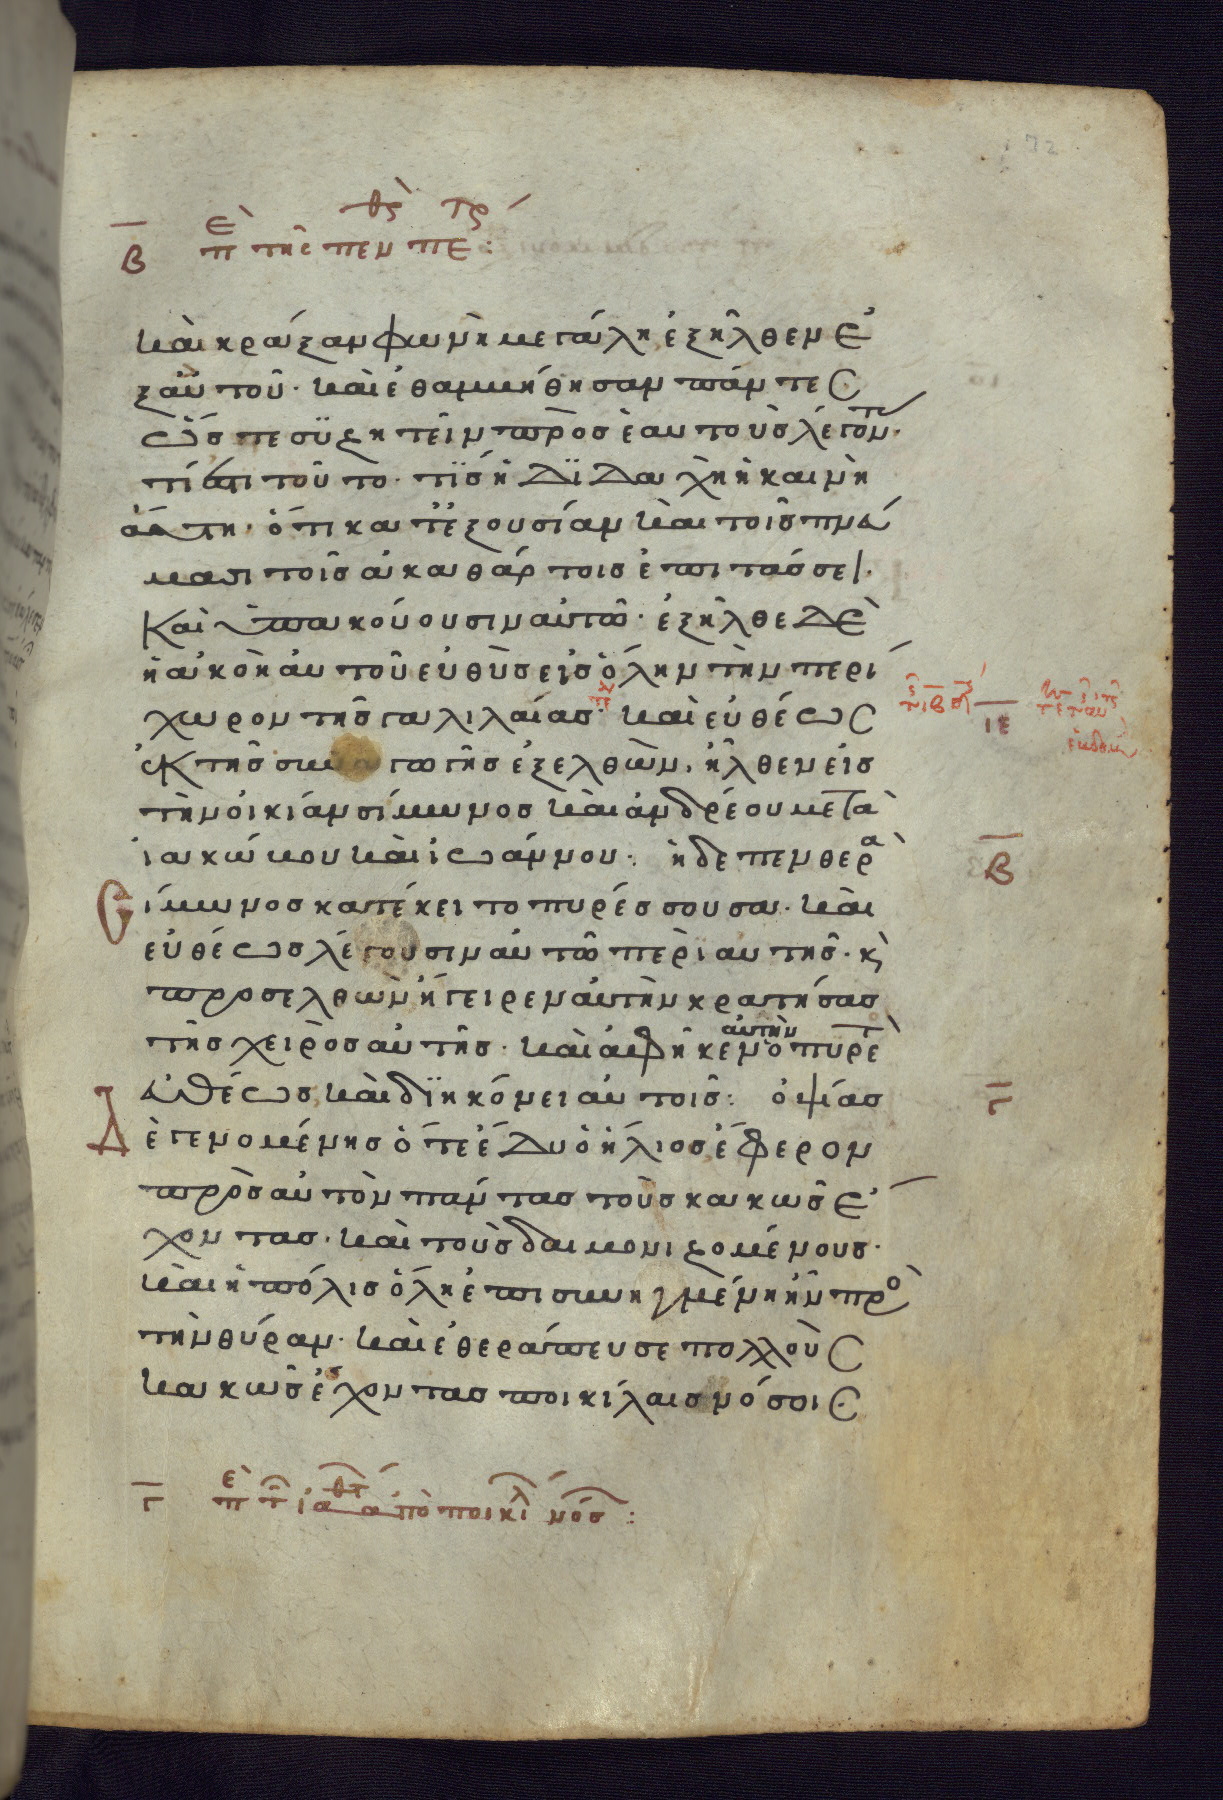 Β ἐπὶ τῆς πενθερᾶς Πέτρου:
καὶ κράξαν φωνῆ μεγάλη ἐξῆλθεν ἐ
ξαὐτοῦ· καὶ ἐθαμβήθησαν πάντες·
ὥστε συζητεῖν πρὸς ἑαυτοὺς λέγοντ·
τί ἐστι τοῦτο· τίς ἡ διδαχὴ ἡ καινὴ
αὕτη· ὅτι κατ ἐξουσίαν καὶ τοῖς πνά
μασι τοῖς ἀκαθάρτοις ἐπιτάσσει·
Καὶ ὑπακούουσιν αὐτῶ· ἐξῆλθε δὲ
ἡ ἀκοὴ αὐτοῦ εὐθὺς εἰς ὅλην τὴν περί
χωρον τῆς γαλιλαίας· καὶ εὐθέως
ἐκ τῆς συναγωγῆς ἐξελθὼν, ἦλθεν εἰς
ΙΕ
τὴν οἰκίαν σίμωνος καὶ ἀνδρέου μετὰ
ἰακώβου καὶ ἰωάννου· ἡ δὲ πενθερὰ
Β
Σίμωνος κατέκειτο πυρέσσουσα· καὶ
εὐθέως λέγουσιν αὐτῶ περὶ αὐτῆς· κ
προσελθὼν ἤγειρεν αὐτὴν κρατήσας
τῆς χειρὸς αὐτῆς· καὶ ἀφῆκεν αὐτὴν ὁ πυρετὸ
εὐθέως, καὶ διηκόνει αὐτοῖς: ὀψίας
Γ
Δὲ γενομένης ὅτε ἔδυ ὁ ἥλιος ἔφερον
πρὸς αὐτὸν πάντας τοὺς κακῶς ἔ
χοντας· καὶ τοὺς δαιμονιζομένους·
καὶ ἡ πόλις ὅλη ἐπισυνηγμένη ἦν πρὸ
τὴν θύραν· καὶ ἐθεράπευσε πολλοὺς
κακῶς ἔχοντας ποικίλαις νόσοις·
Γ ἀπὸ ποικίλ νόσ: